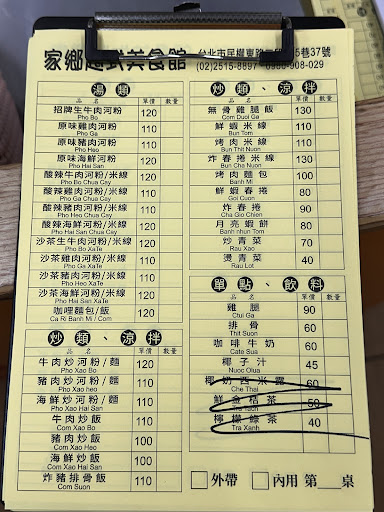 家鄉越式美食館
台北市民權東路 巷37號
(02)2515-8897
湯類
品名 單價 數量
招牌生牛肉河粉 120
Pho Bo
原味雞肉河粉 110
Pho Ga
原味豬肉河粉 110
Pho Heo
原味海鮮河粉 120
Pho Hai San
酸辣牛肉河粉/米線 120
Pho Bo Chua Cay
酸辣雞肉河粉/米線 110
Pho Ga Chua Cay
酸辣豬肉河粉/米線 110
Pho Heo Chua Cay
酸辣海鮮河粉/米線 120
Pho Hai San Chua Cay
沙茶生牛肉河粉/米線 120
Pho Bo XaTe
沙茶雞肉河粉/米線 110
Pho Ga XaTe
沙茶豬肉河粉/米線 110
Pho Heo XaTe
沙茶海鮮河粉/米線 120
Pho Hai San XaTe
咖哩麵包/飯 120
Ca Ri Banh Mi / Com
炒類、涼拌
品名 單價 數量
牛肉炒河粉/麵 120
Pho Xao Bo
豬肉炒河粉/麵 110
Pho Xao heo
海鮮炒河粉/麵 110
Pho Xao Hai San
牛肉炒飯 110
Com Xao Bo
豬肉炒飯 100
Com Xao Heo
海鮮炒飯 100
Com Xao Hai San
炸豬排骨飯 110
Com Suon
炒類、涼拌
品名 單價 數量
無骨雞腿飯 130
Com Duoi Ga
鮮蝦米線 110
Bun Tom
烤肉米線 110
Bun Thit Nuon
炸春捲米線 130
Bun Cha Nuon
烤肉麵包 100
Banh Mi
鮮蝦春捲 80
Goi Cuon
炸春捲 90
Cha Gio Chien
月亮蝦餅 80
Banh nhun Tom
炒青菜 70
Rau Xao
燙青菜 40
Rau Lot
單點、飲料
品名 單價 數量
雞 90
Chui Ga
排骨 60
Thit Suon
咖啡牛奶 60
Cate Sua
椰子汁 45
Nuoc Olua
椰奶西米露 60
Che Thai
鮮金桔茶 50
檸檬綠茶 40
Tra Xanh
外帶 內用 第 桌